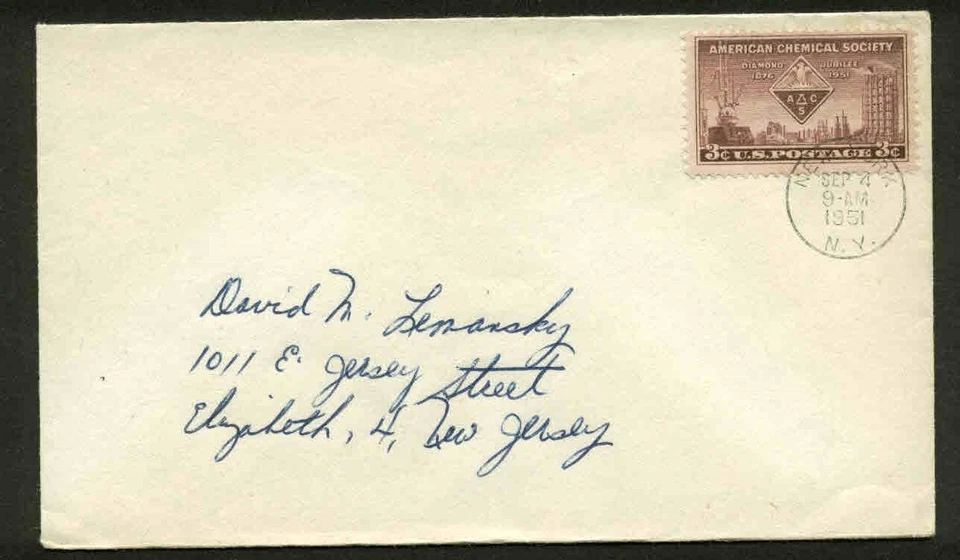 AMERICAN CHEMICAL SOCIETY
DIAMOND JUBILEE
1876 1951
A C
S
3¢ U.S. POSTAGE 3¢
NEW YORK
SEP 4
9-AM
1951
N.Y.
David M. Lemansky
1011 E. Jersey Street
Elizabeth, 4, New Jersey